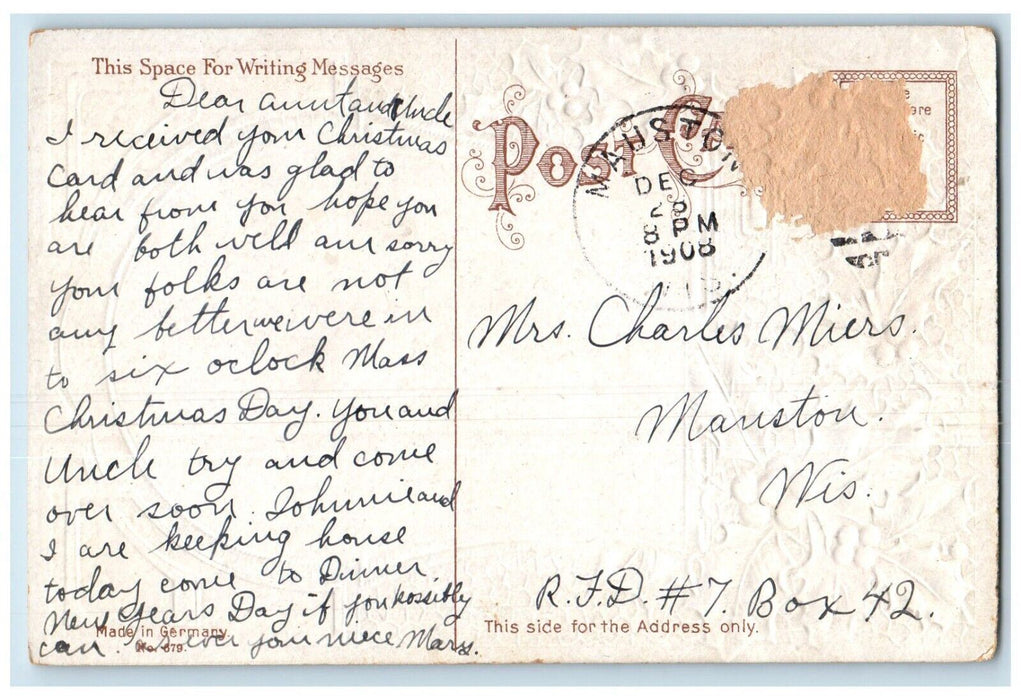 This Space For Writing Messages
Dear aunt and Uncle
I received your Christmas
Card and was glad to
hear from you hope you
are both well am sorry
your folks are not
any better we were in
to six oclock Mass
Christmas Day. You and
Uncle try and come
over soon. Johnnie and
I are keeping house
today come to Dinner
New Years Day if you possibly
can. as ever your niece Mary.
Made in Germany.
No. 679.
Post
MAUSTON
DEC
8 PM
1908
WIS.
Mrs. Charles Miers.
Mauston.
Wis.
R.F.D. #7. Box 42.
This side for the Address only.